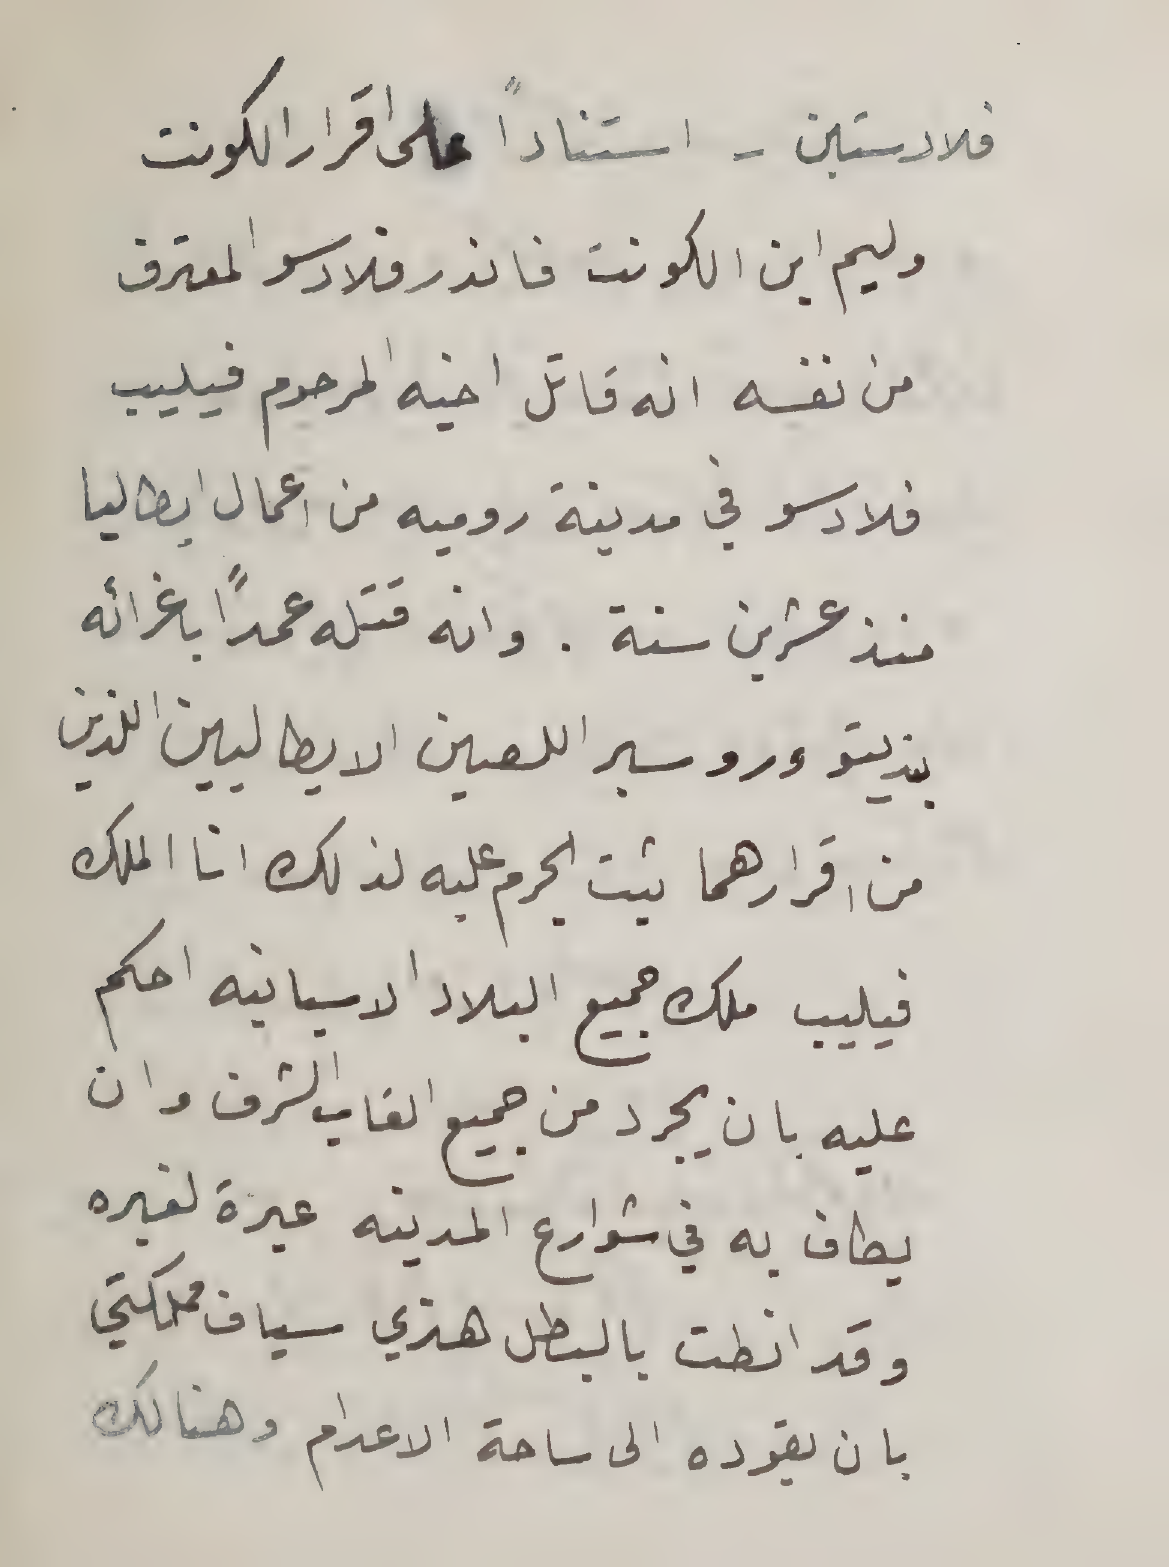 فلادستين - استناداً على اقرار الكونت
وليم ابن الكونت فاندر فلادسو المعترف
من نفسه انه قاتل اخيه المرحوم فيليب
فلادسو في مدينة روميه من اعمال ايطاليا
منذ عشرين سنة . وانه قتله عمداً باغرائه
بنديتو وروسبر اللصين الايطاليين اللذين
من اقرارهما ثبت الجرم عليه لذلك انا الملك
فيليب ملك جميع البلاد الاسبانيه احكم
عليه بان يجرد من جميع القاب الشرف وان
يطاف به في شوارع المدينه عبرة لغيره
وقد انطت بالبطل هنري سياف مملكتي
بان يقوده الى ساحة الاعدام وهنالك